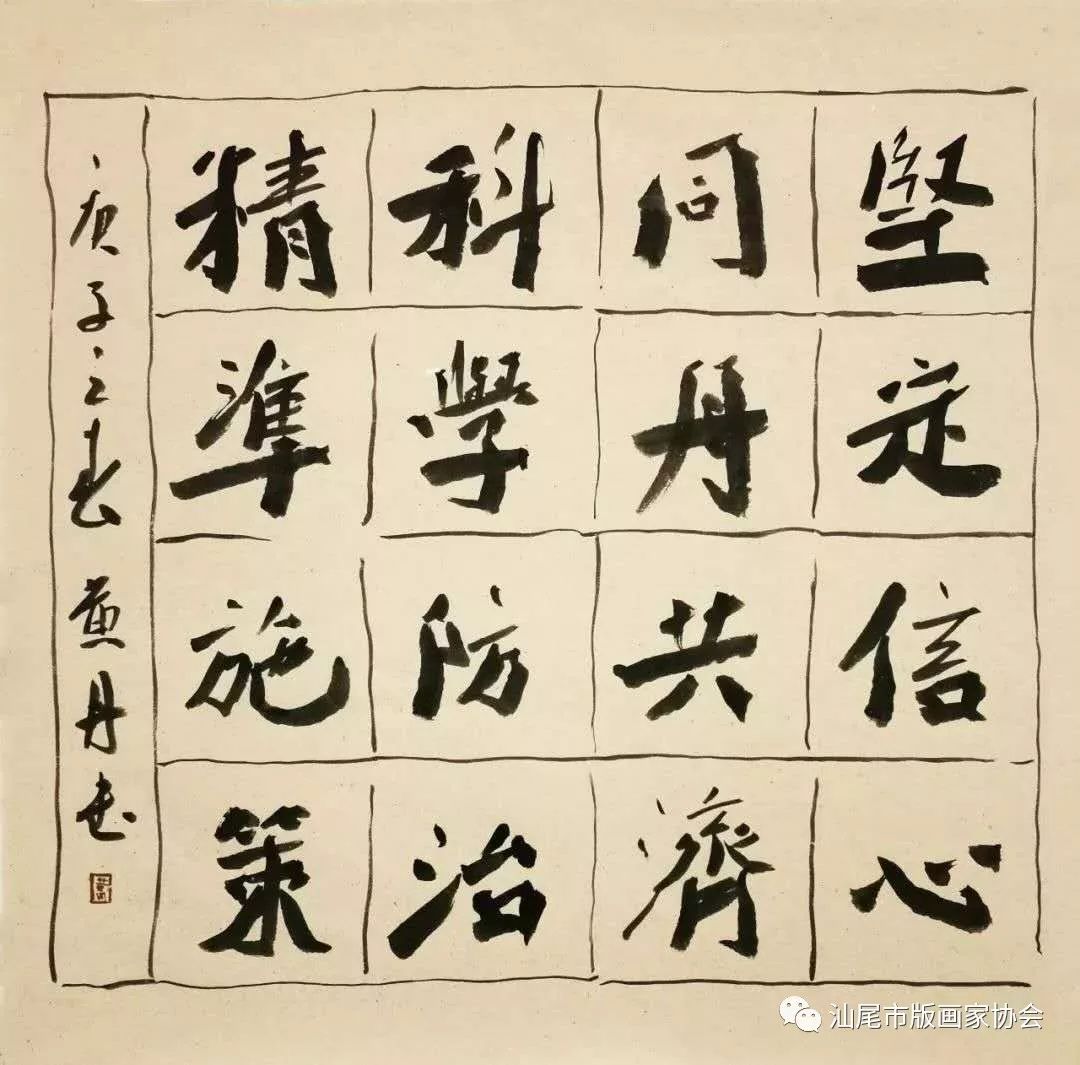 堅定信心
同舟共濟
科學防治
精準施策
庚子之春 丹書
汕尾市版画家协会